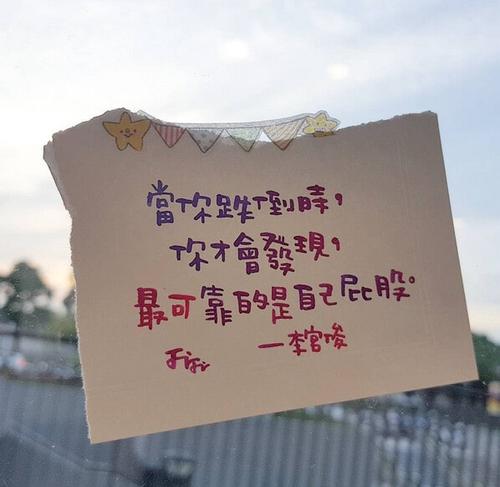 當你跌倒時，
你才會發現，
最可靠的是自己屁股。
一李宮俊
Jiji